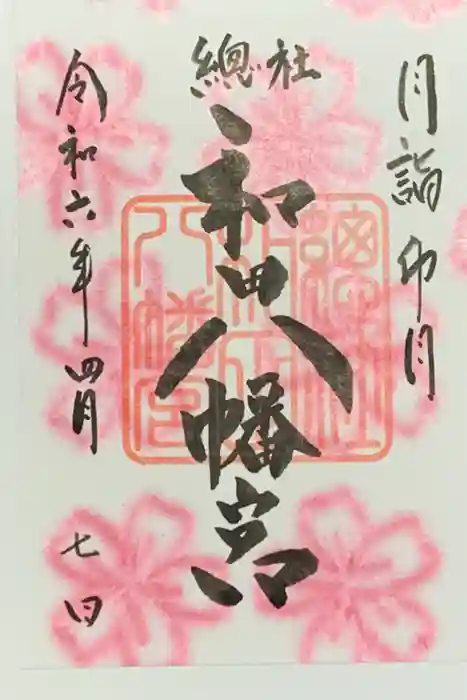 月詣 卯月
總社
和田八幡宮
令和六年四月
七日
總社
八幡宮